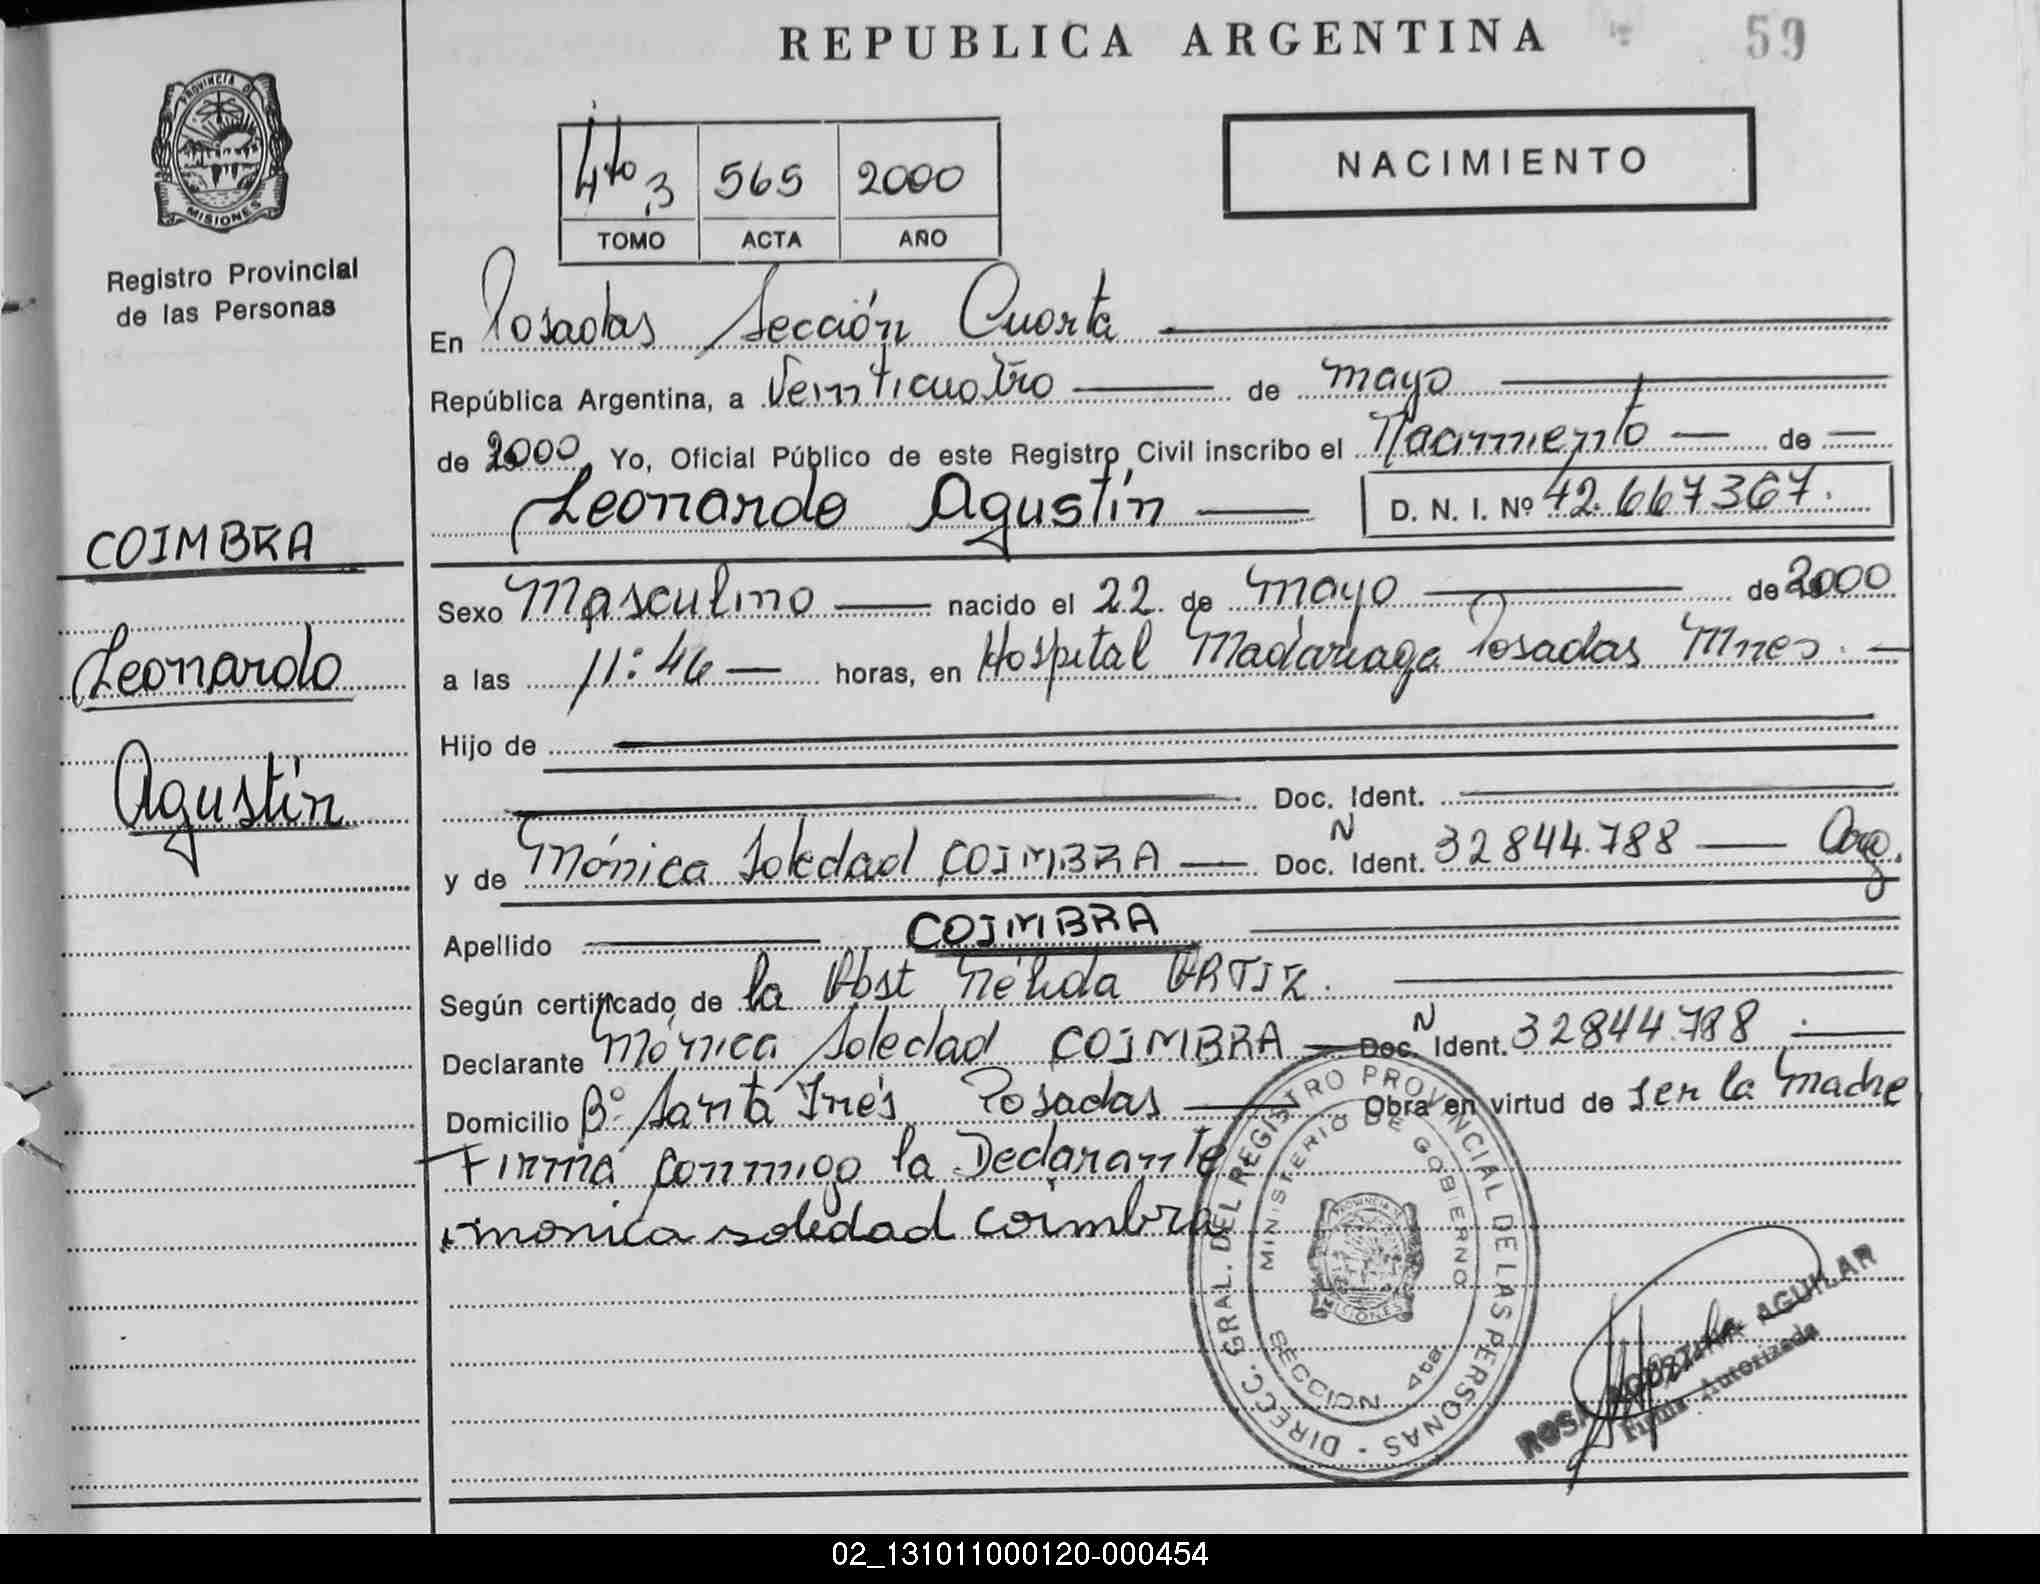 REPUBLICA ARGENTINA
59
PROVINCIA DE
MISIONES
Registro Provincial
de las Personas
4to 3 565 2000
TOMO ACTA AÑO
NACIMIENTO
En Posadas Sección Cuarta
República Argentina, a Veinticuatro de mayo
de 2000 Yo, Oficial Público de este Registro Civil inscribo el Nacimiento de
Leonardo Agustín D. N. I. Nº 42.667367.
COIMBRA
Leonardo
Agustín
Sexo Masculino nacido el 22 de Mayo de 2000
a las 11:46 horas, en Hospital Madariaga Posadas Mnes.
Hijo de
Doc. Ident.
y de Mónica Soledad COIMBRA Doc. N Ident. 32844.788 Arg.
Apellido COIMBRA
Según certificado de la Obst Nélida ORTIZ.
Declarante Mónica Soledad COIMBRA Doc. N Ident. 32844.788
Domicilio Bº Santa Inés Posadas Obra en virtud de ser la madre
Firma conmigo la Declarante
monica soledad coimbra
DIRECC. GRAL. DEL REGISTRO PROVINCIAL DE LAS PERSONAS
MINISTERIO DE GOBIERNO
MISIONES
SECCION 4ta
ROSA AGUILAR
Firma Autorizada
02_131011000120-000454